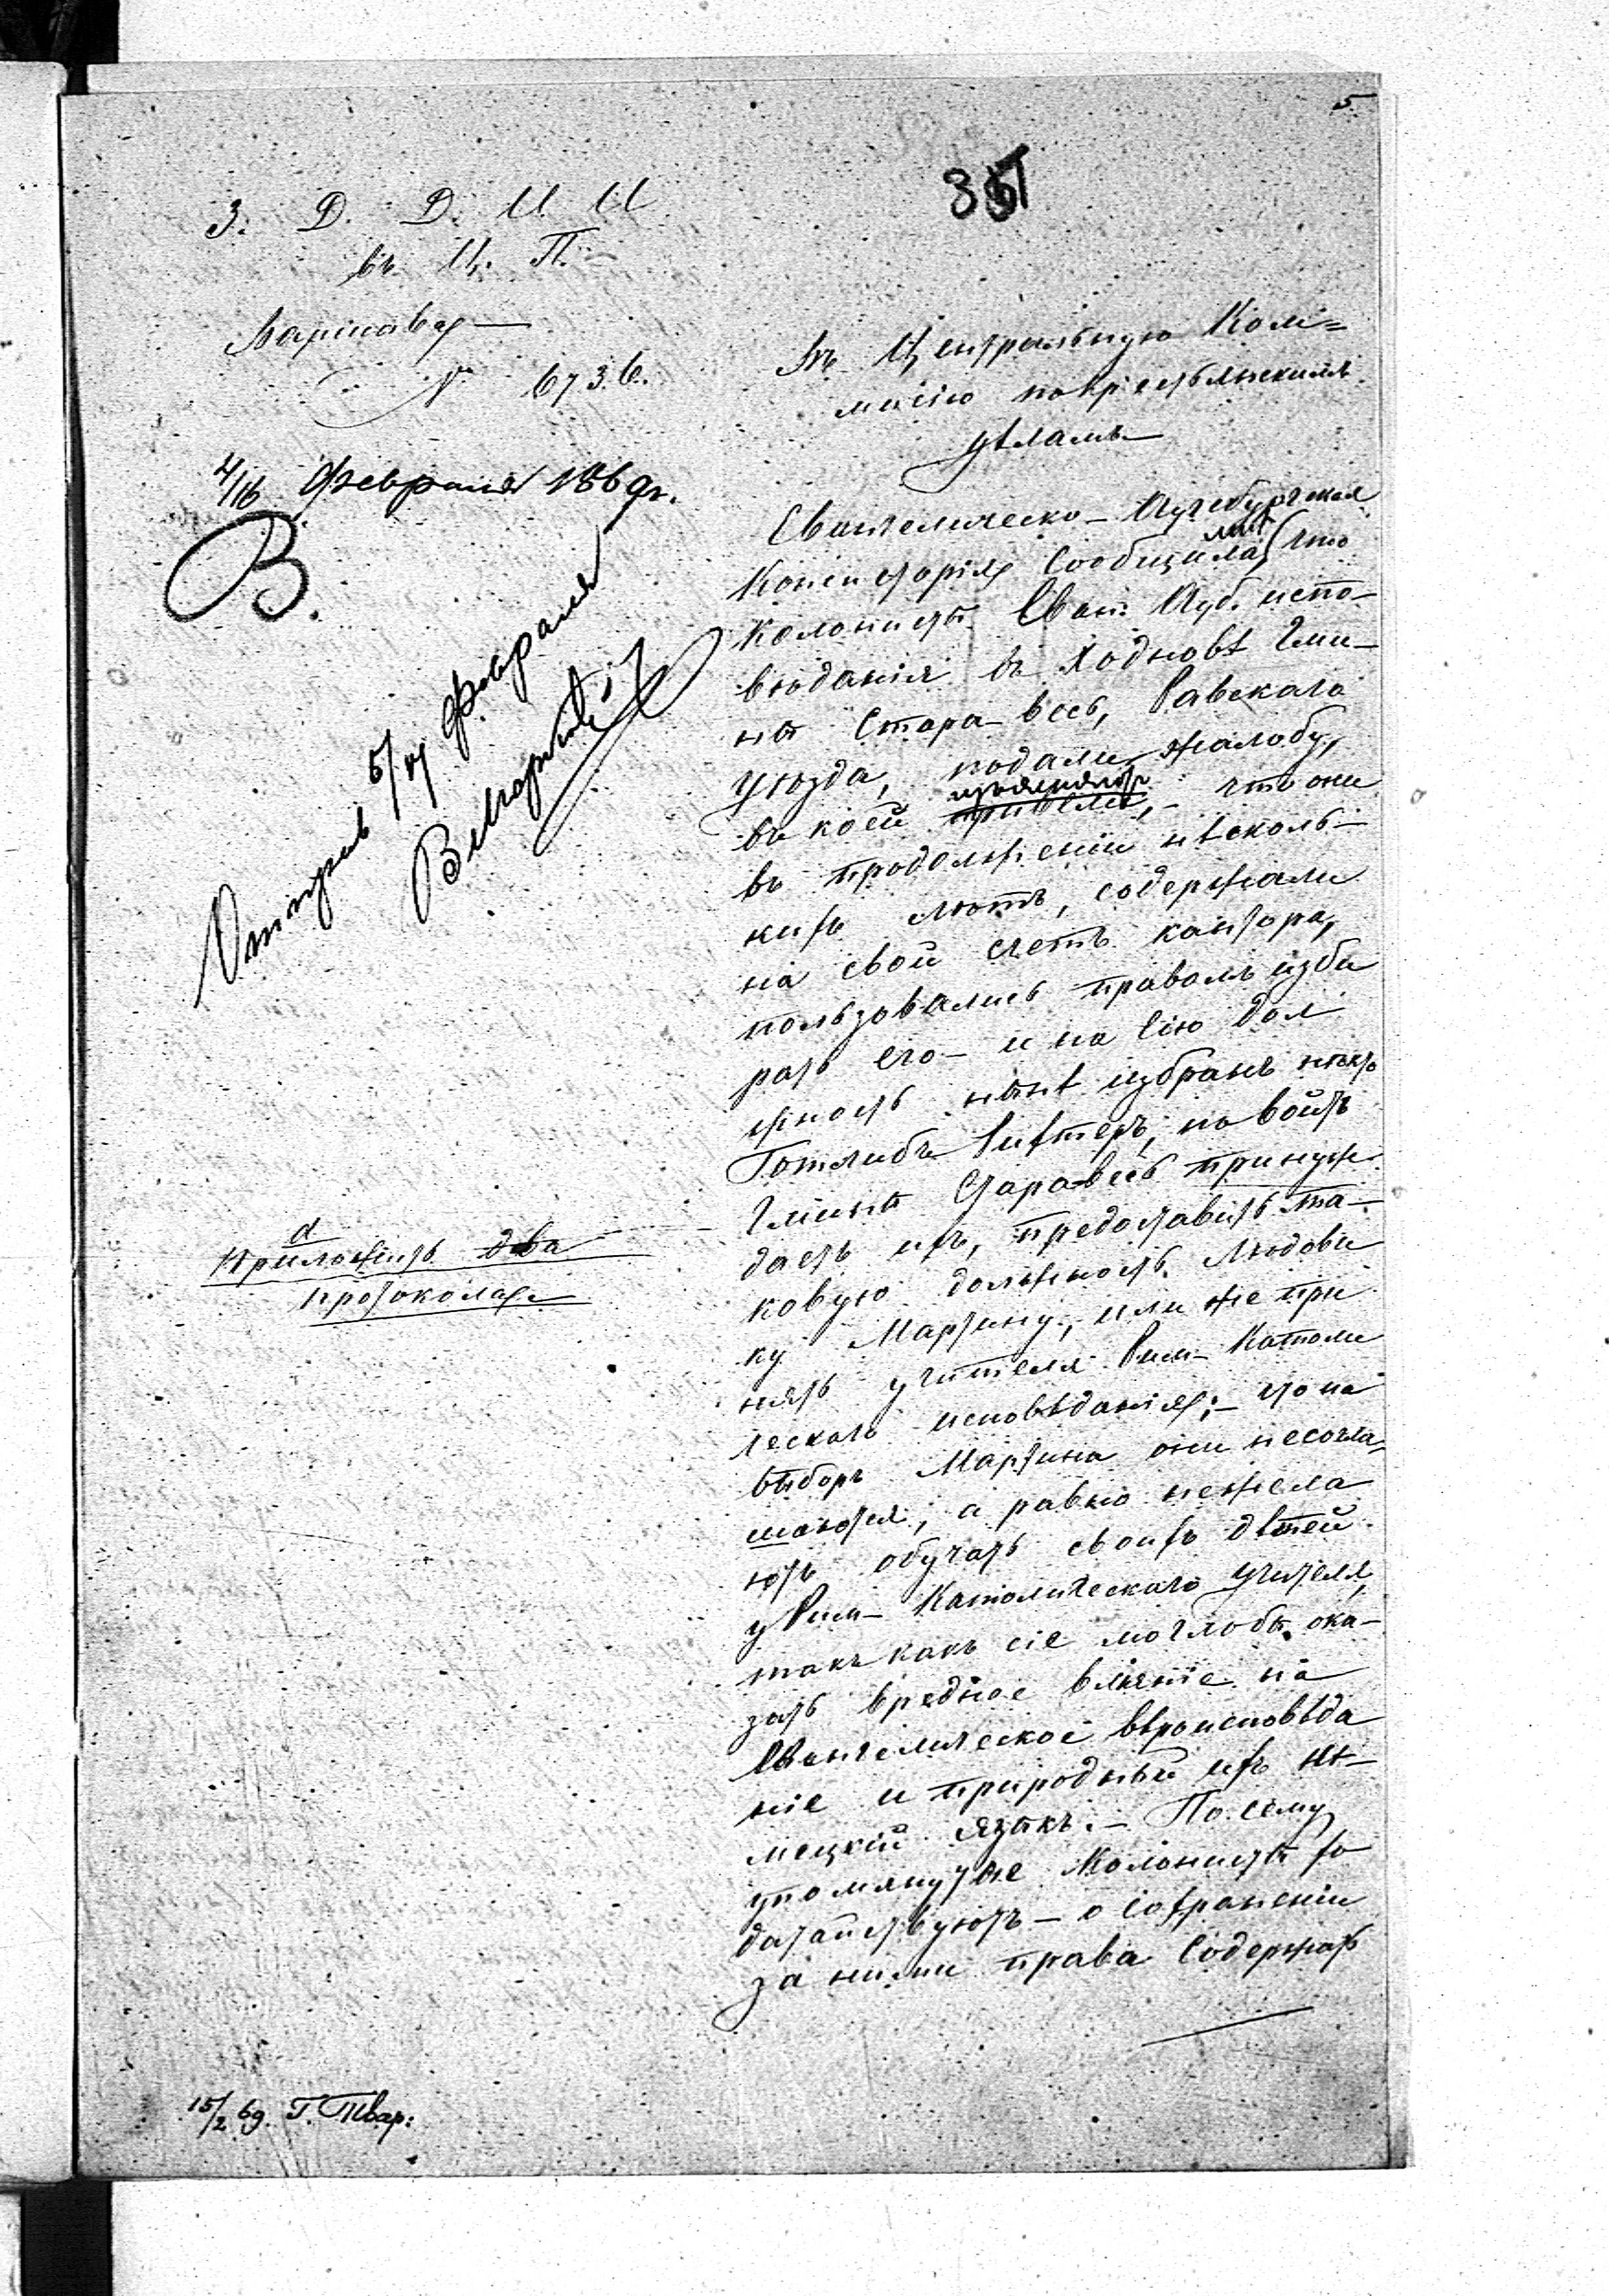 5
З. Д. Д. И. И
въ Ц. П.
Варшава
№ 6736.
4/16 Февраля 1869 г.
В.
5/17 февраля
Приложить два
протокола
Въ Центральную Ком=
мисію по крестьянскимъ
дѣламъ
Евангелическо-Аугсбургская
Консисторія сообщила мнѣ, что
колонисты Еван. Ауб. испо-
вѣданія въ Ходновѣ Гми-
ны Стара-весь, Равскаго
уѣзда, подали жалобу,
въ коей изъясняютъ, что они
въ продолженіи нѣсколь-
кихъ лѣтъ, содержали
на свой счетъ кантора,
пользовались правомъ изби
рать его - и на сію дол
жность нынѣ избранъ нѣкто
Готлибъ Рихтеръ, но войтъ
Гмины Старавесь принуж
даетъ ихъ, предоставить та-
ковую должность Людови
ку Мартину, или же при
нять учителя Рим-Католи
ческаго исповѣданія; - но на
выборъ Мартина они несогла=
шаются, а равно нежела
ютъ обучать своихъ дѣтей
у Рим-Католическаго учителя,
такъ какъ сіе моглобы ока-
зать вредное вліяніе на
Евангелическое вѣроисповѣда
ніе и природный ихъ нѣ-
мецкій языкъ. - По сему
упомянутые Колонисты хо
датайствуютъ - о сохраненіи
за ними права содержать
15/2 69. Г. Твар: